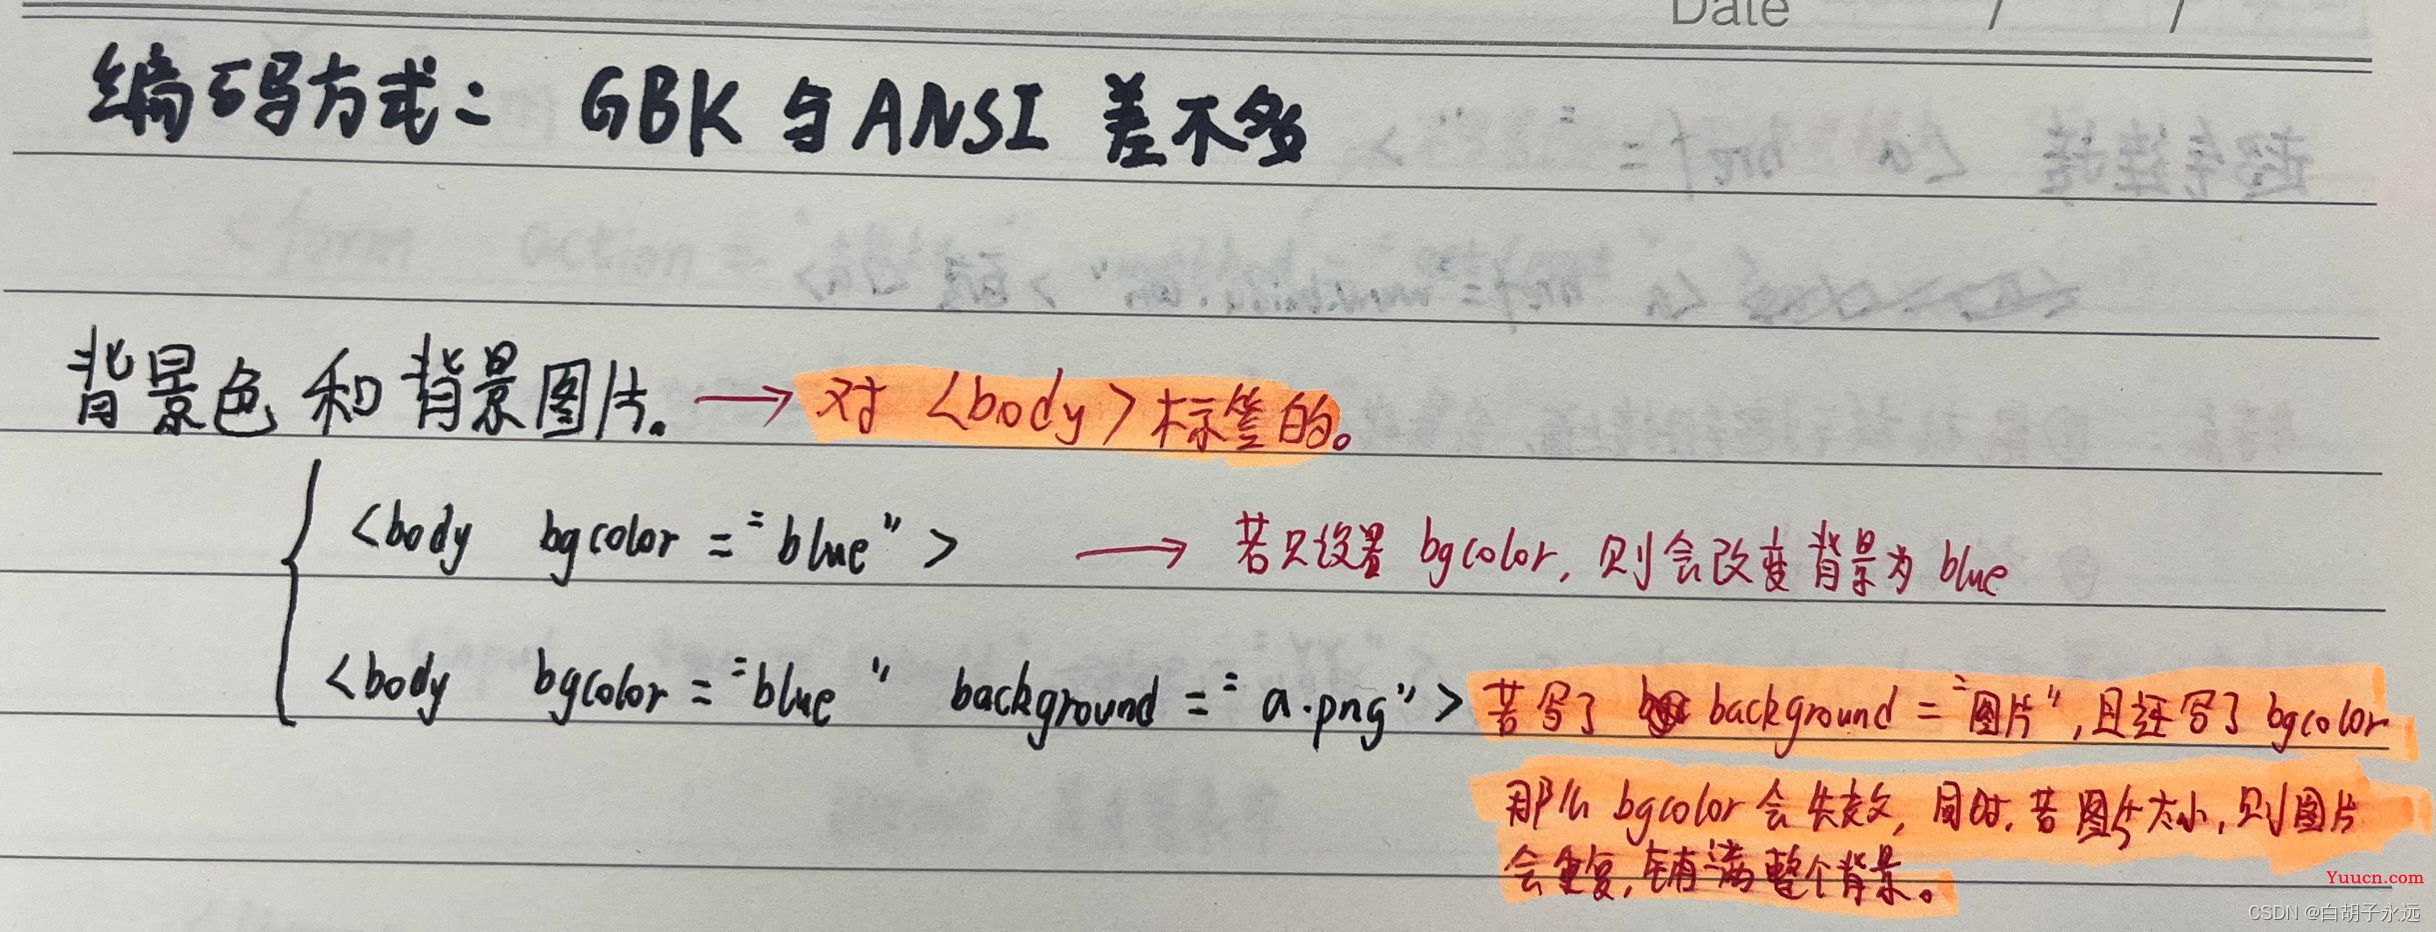 Date / /
编码方式： GBK 与 ANSI 差不多
背景色 和 背景图片。 → 对 <body> 标签的。
<body bgcolor = "blue" > → 若只设置 bgcolor, 则会改变背景为 blue
<body bgcolor = "blue" background = "a.png" > 若写了 background = "图片", 且还写了 bgcolor
那么 bgcolor 会失效, 同时, 若图片太小, 则图片
会重复, 铺满整个背景。
Yuucn.com
CSDN @白胡子永远